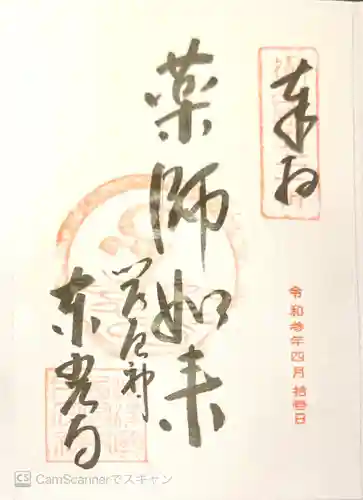 奉拝
令和参年四月拾壱日
薬師如来
東光寺
CS CamScannerでスキャン